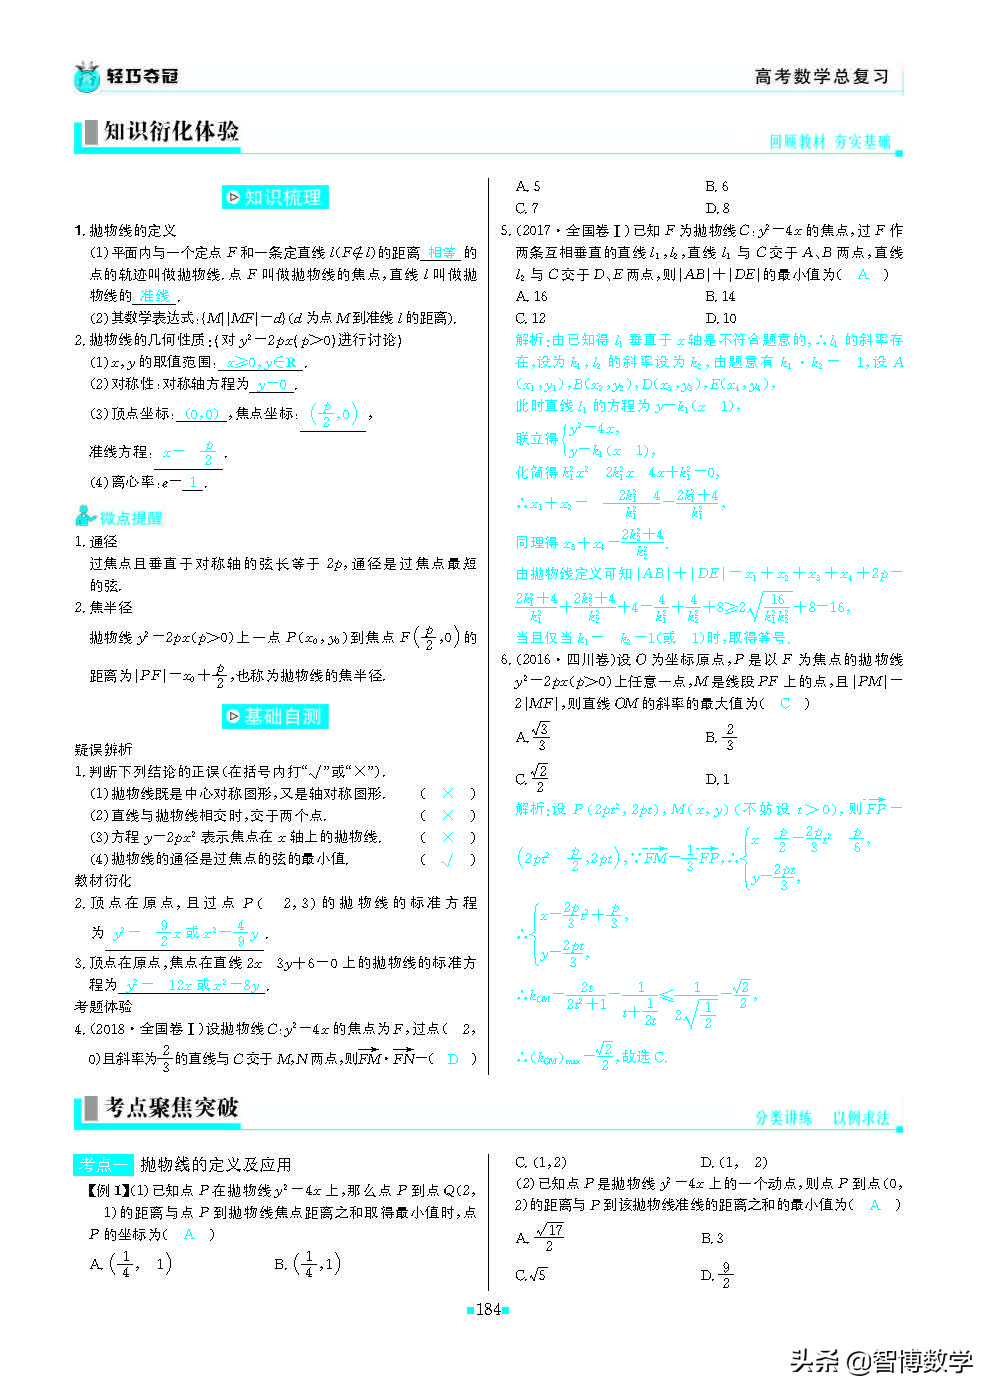 轻巧夺冠
高考数学总复习
知识衍化体验
回顾教材 夯实基础
知识梳理
1. 抛物线的定义
(1)平面内与一个定点 F 和一条定直线 l(F∉l)的距离 相等 的
点的轨迹叫做抛物线. 点 F 叫做抛物线的焦点,直线 l 叫做抛
物线的 准线 .
(2)其数学表达式:{M||MF|=d}(d 为点 M 到准线 l 的距离).
2. 抛物线的几何性质:{对 y²=2px{p>0}进行讨论}
(1)x,y 的取值范围: x≥0,y∈R .
(2)对称性:对称轴方程为 y=0 .
(3)顶点坐标: (0,0) ,焦点坐标: (p/2,0) ,
准线方程: x= p/2 .
(4)离心率:e= 1 .
微点提醒
1. 通径
过焦点且垂直于对称轴的弦长等于 2p,通径是过焦点最短
的弦.
2. 焦半径
抛物线 y²=2px(p>0)上一点 P(x₀,y₀)到焦点 F(p/2,0)的
距离为|PF|=x₀+p/2,也称为抛物线的焦半径.
基础自测
疑误辨析
1. 判断下列结论的正误(在括号内打“√”或“×”).
(1)抛物线既是中心对称图形,又是轴对称图形. ( × )
(2)直线与抛物线相交时,交于两个点. ( × )
(3)方程 y=2px² 表示焦点在 x 轴上的抛物线. ( × )
(4)抛物线的通径是过焦点的弦的最小值. ( √ )
教材衍化
2. 顶点在原点,且过点 P( 2,3)的抛物线的标准方程
为 y²= 9/2 x 或 x²=4/9 y .
3. 顶点在原点,焦点在直线 2x 3y+6=0 上的抛物线的标准方
程为 y²= 12x 或 x²=8y .
考题体验
4. (2018·全国卷Ⅰ)设抛物线 C:y²=4x 的焦点为 F,过点( 2,
0)且斜率为2/3的直线与 C 交于 M,N 两点,则FM→·FN→=( D )
A. 5 B. 6
C. 7 D. 8
5. (2017·全国卷Ⅰ)已知 F 为抛物线 C:y²=4x 的焦点,过 F 作
两条互相垂直的直线 l₁,l₂,直线 l₁ 与 C 交于 A、B 两点,直线
l₂ 与 C 交于 D、E 两点,则|AB|+|DE|的最小值为( A )
A. 16 B. 14
C. 12 D. 10
解析:由已知得 l₁ 垂直于 x 轴是不符合题意的,∴l₁ 的斜率存
在,设为 k₁,l₂ 的斜率设为 k₂,由题意有 k₁·k₂= 1,设 A
(x₁,y₁),B(x₂,y₂),D(x₃,y₃),E(x₄,y₄),
此时直线 l₁ 的方程为 y=k₁(x 1),
联立得{y²=4x,
y=k₁(x 1),
化简得 k₁²x² 2k₁²x 4x+k₁²=0,
∴x₁+x₂= 2k₁² 4/k₁²=2k₁²+4/k₁²,
同理得 x₃+x₄=2k₂²+4/k₂².
由抛物线定义可知|AB|+|DE|=x₁+x₂+x₃+x₄+2p=
2k₁²+4/k₁²+2k₂²+4/k₂²+4=4/k₁²+4/k₂²+8≥2√(16/k₁²k₂²)+8=16,
当且仅当 k₁= k₂=1(或 1)时,取得等号.
6. (2016·四川卷)设 O 为坐标原点,P 是以 F 为焦点的抛物线
y²=2px(p>0)上任意一点,M 是线段 PF 上的点,且|PM|=
2|MF|,则直线 OM 的斜率的最大值为( C )
A. √3/3 B. 2/3
C. √2/2 D. 1
解析:设 P(2pt²,2pt),M(x,y)(不妨设 t>0),则FP→=
(2pt² p/2,2pt),∵FM→=1/3FP→,∴{x p/2=2p/3 t² p/6,
y=2pt/3,
∴{x=2p/3 t²+p/3,
y=2pt/3,
∴k_OM=2t/(2t²+1)=1/(t+1/2t)≤1/(2√(1/2))=√2/2,
∴(k_OM)max=√2/2,故选 C.
考点聚焦突破
分类讲练 以例求法
考点一 抛物线的定义及应用
【例 1】(1)已知点 P 在抛物线 y²=4x 上,那么点 P 到点 Q(2,
1)的距离与点 P 到抛物线焦点距离之和取得最小值时,点
P 的坐标为( A )
A. (1/4, 1) B. (1/4,1)
C. (1,2) D. (1, 2)
(2)已知点 P 是抛物线 y²=4x 上的一个动点,则点 P 到点(0,
2)的距离与 P 到该抛物线准线的距离之和的最小值为( A )
A. √17/2 B. 3
C. √5 D. 9/2
184
头条 @智博数学